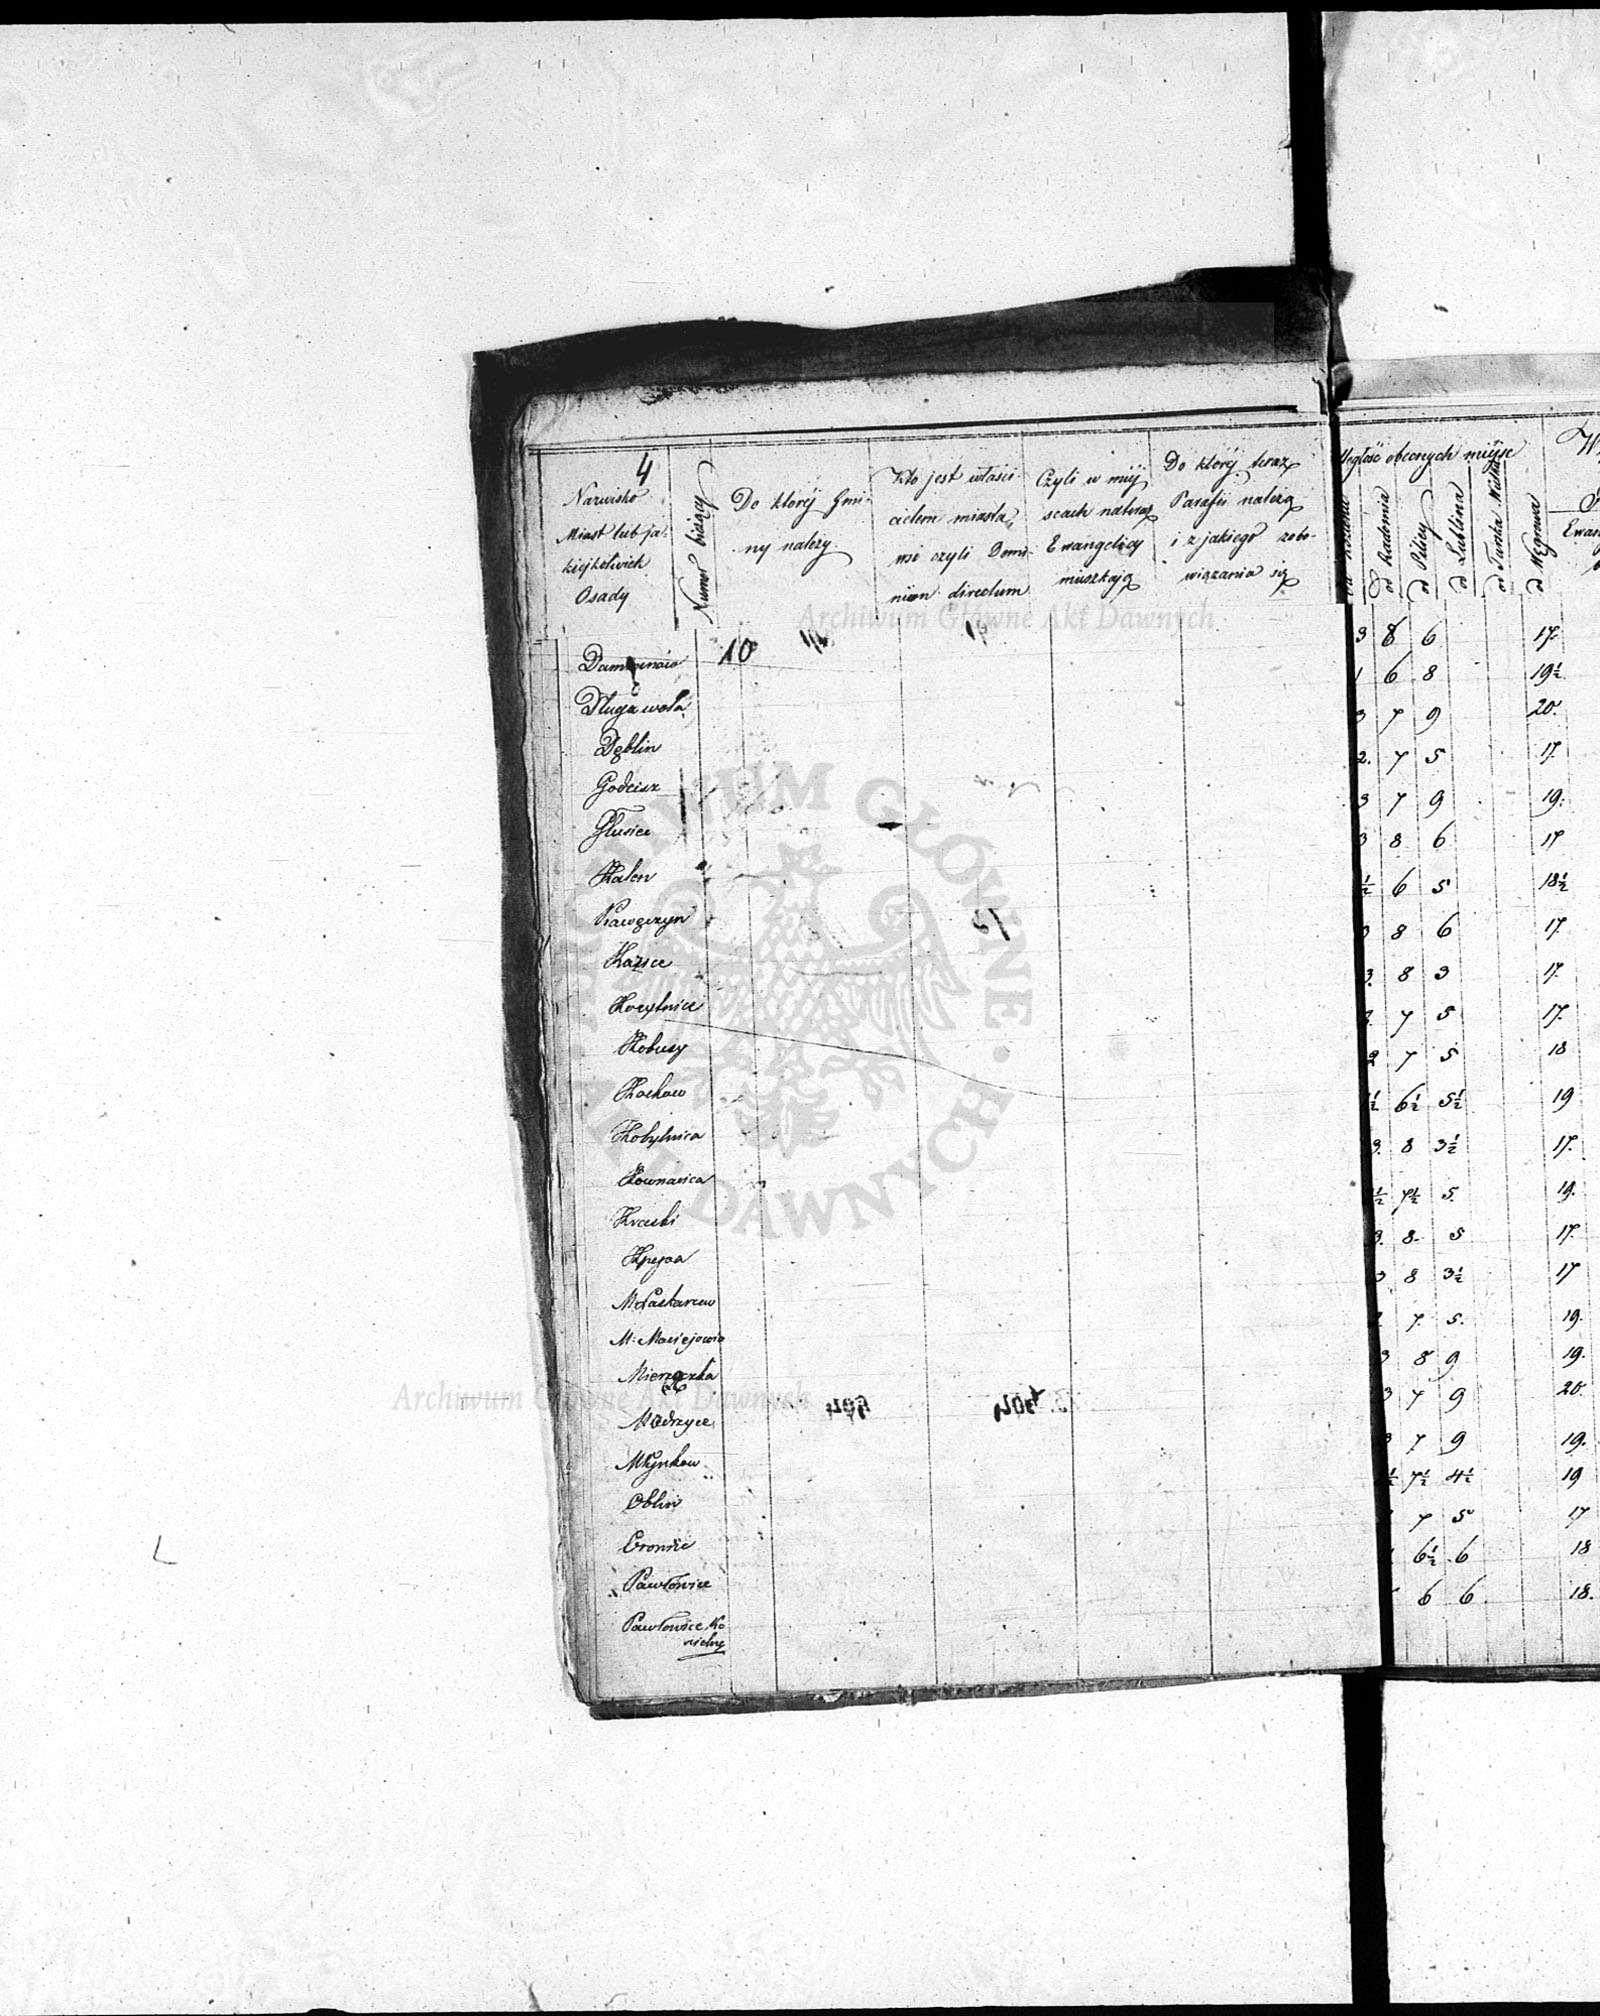 4
Nazwisko
Miast lub ja-
kiejkolwiek
Osady
Numer bieżący
Do której Gmi-
ny należy
Kto jest właści-
cielem miasta,
wsi czyli Domi-
nium directum
Czyli w miej-
scach naterаz
Ewangelicy
mieszkają
Do której teraz
Parafii należą
i z jakiego zobo-
wiązania się
ległość obecnych miejsc
od Radomia
od Pilicy
od Lublina
od Węgrowa
Ewan
Archiwum Główne Akt Dawnych
10
Długa wola
Dęblin
Godzisz
Głusiec
Kalen
Kawęczyn
Kazice
Kobusy
Kochow
Kobylnica
Kownacica
Kraski
Kępa
M: Maciejowic
Mierzączka
Modrzyce
Młynkow
Oblin
Oronne
Pawłowice
Pawłowice Ko
3 8 6 17
1 6 8 19½
3 7 9 20.
2. 7 5 17.
3 7 9 19.
3 8 6 17
½ 6 5 18½
8 6 17.
3. 8 3 17.
7 5 17.
2 7 5 18
½ 6½ 5½ 19
3. 8 3½ 17.
½ 7½ 5. 19.
3. 8. 5 17.
3 8 3½ 17
7. 5. 19.
3 8 9 19.
3 7 9 20.
3 7 9 19.
½ 7½ 4½ 19
7 5 17
6½ 6 18
6 6 18.
ARCHIWUM GŁÓWNE AKT DAWNYCH
Archiwum Główne Akt Dawnych